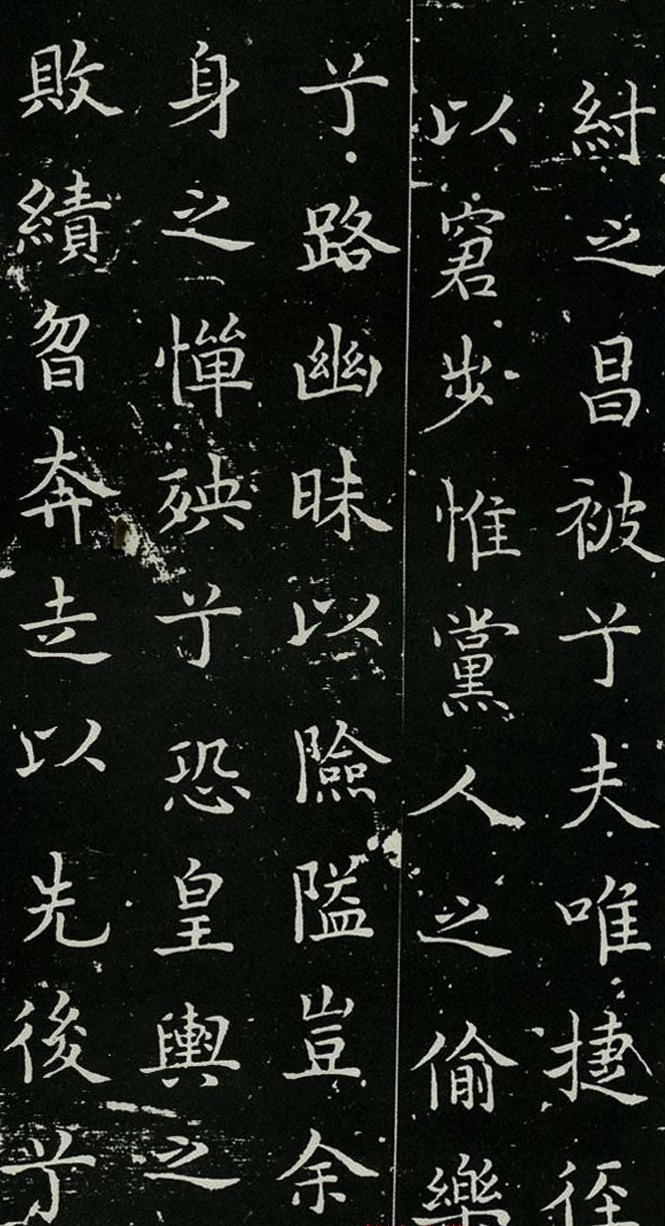 紂之昌被兮夫唯捷徑
以窘步惟黨人之偷樂
兮路幽昧以險隘豈余
身之憚殃兮恐皇輿之
敗績曶奔走以先後兮